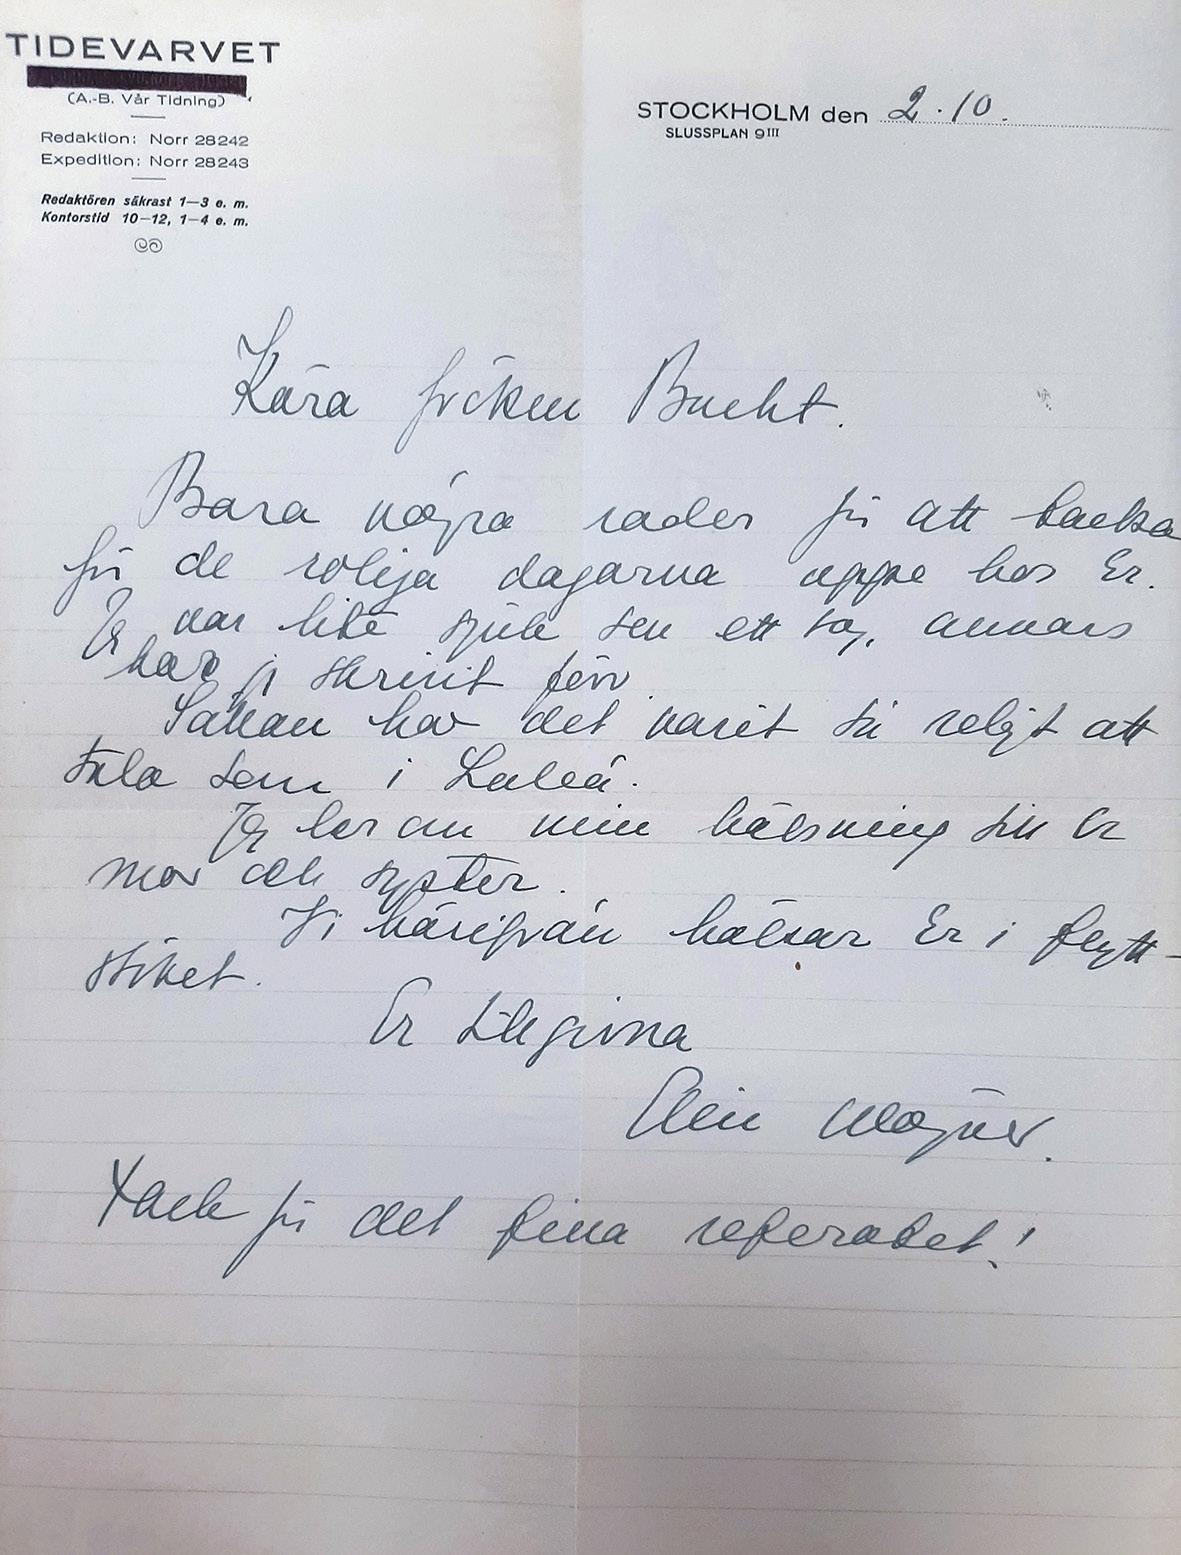 TIDEVARVET
(A.-B. Vår Tidning)
Redaktion: Norr 28242
Expedition: Norr 28243
Redaktören säkrast 1—3 e. m.
Kontorstid 10—12, 1—4 e. m.
STOCKHOLM den 2.10.
SLUSSPLAN 9 III
Kära fröken Bucht.
Bara några rader för att tacka
för de roliga dagarna uppe hos Er.
Jag var lite sjuk sen ett tag, annars
har jag skrivit förr.
Sällan har det varit så roligt att
tala som i Luleå.
Jag ber om min hälsning till Er
mor och syster.
Vi härifrån hälsar Er i flytt-
stöket.
Er tillgivna
Elin Wägner.
Tack för det fina referatet!